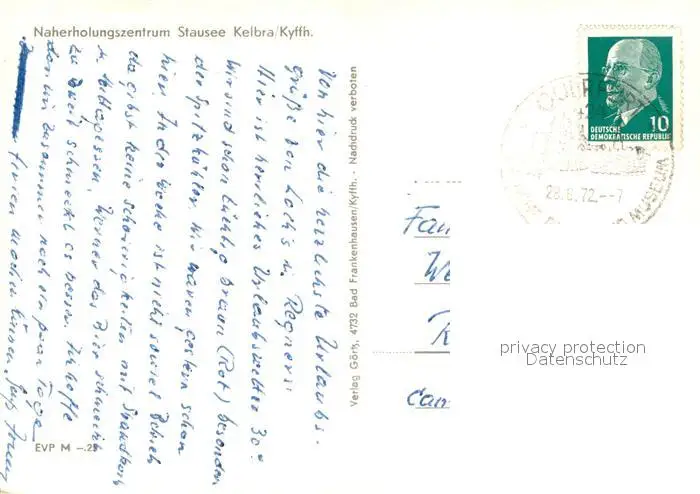 Naherholungszentrum Stausee Kelbra/Kyffh.
Von hier die herzlichste Urlaubs-
grüße von Loch's u. Regners.
Hier ist herrliches Urlaubswetter 30°
Wir sind schon tüchtig braun (Rot) besonders
der Spitzkühler. Wir waren gestern schon
hier. In der Woche ist nicht soviel Betrieb
da gibst keine schwierigkeiten mit
u. Mittagessen, Werner das Bier schmeckt
zu zweit schmeckt es besser. Ich hoffe
das wir zusammen noch ein paar Tage
machen können. Gruß
EVP M –.25
Verlag Görtz, 4732 Bad Frankenhausen/Kyffh. - Nachdruck verboten
DEUTSCHE
DEMOKRATISCHE REPUBLIK
10
28.6.72.--7
MUSEUM
Fam
We
K
Cam
privacy protection
Datenschutz